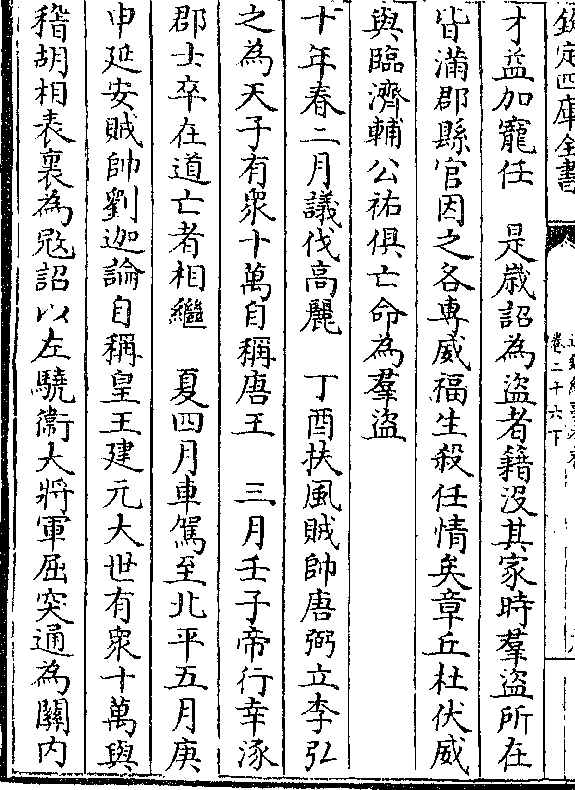 欽定四庫全書
卷二十六下
才益加寵任　是歲詔為盜者籍沒其家時羣盜所在
皆滿郡縣官因之各專威福生殺任情矣章丘杜伏威
與臨濟輔公祏俱亡命為羣盜
十年春二月議伐高麗　丁酉扶風賊帥唐弼立李弘
之為天子有衆十萬自稱唐王　三月壬子帝行幸涿
郡士卒在道亡者相繼　夏四月車駕至北平五月庚
申延安賊帥劉迦論自稱皇王建元大世有衆十萬與
稽胡相表裏為㓂詔以左驍衞大將軍屈突通為關內